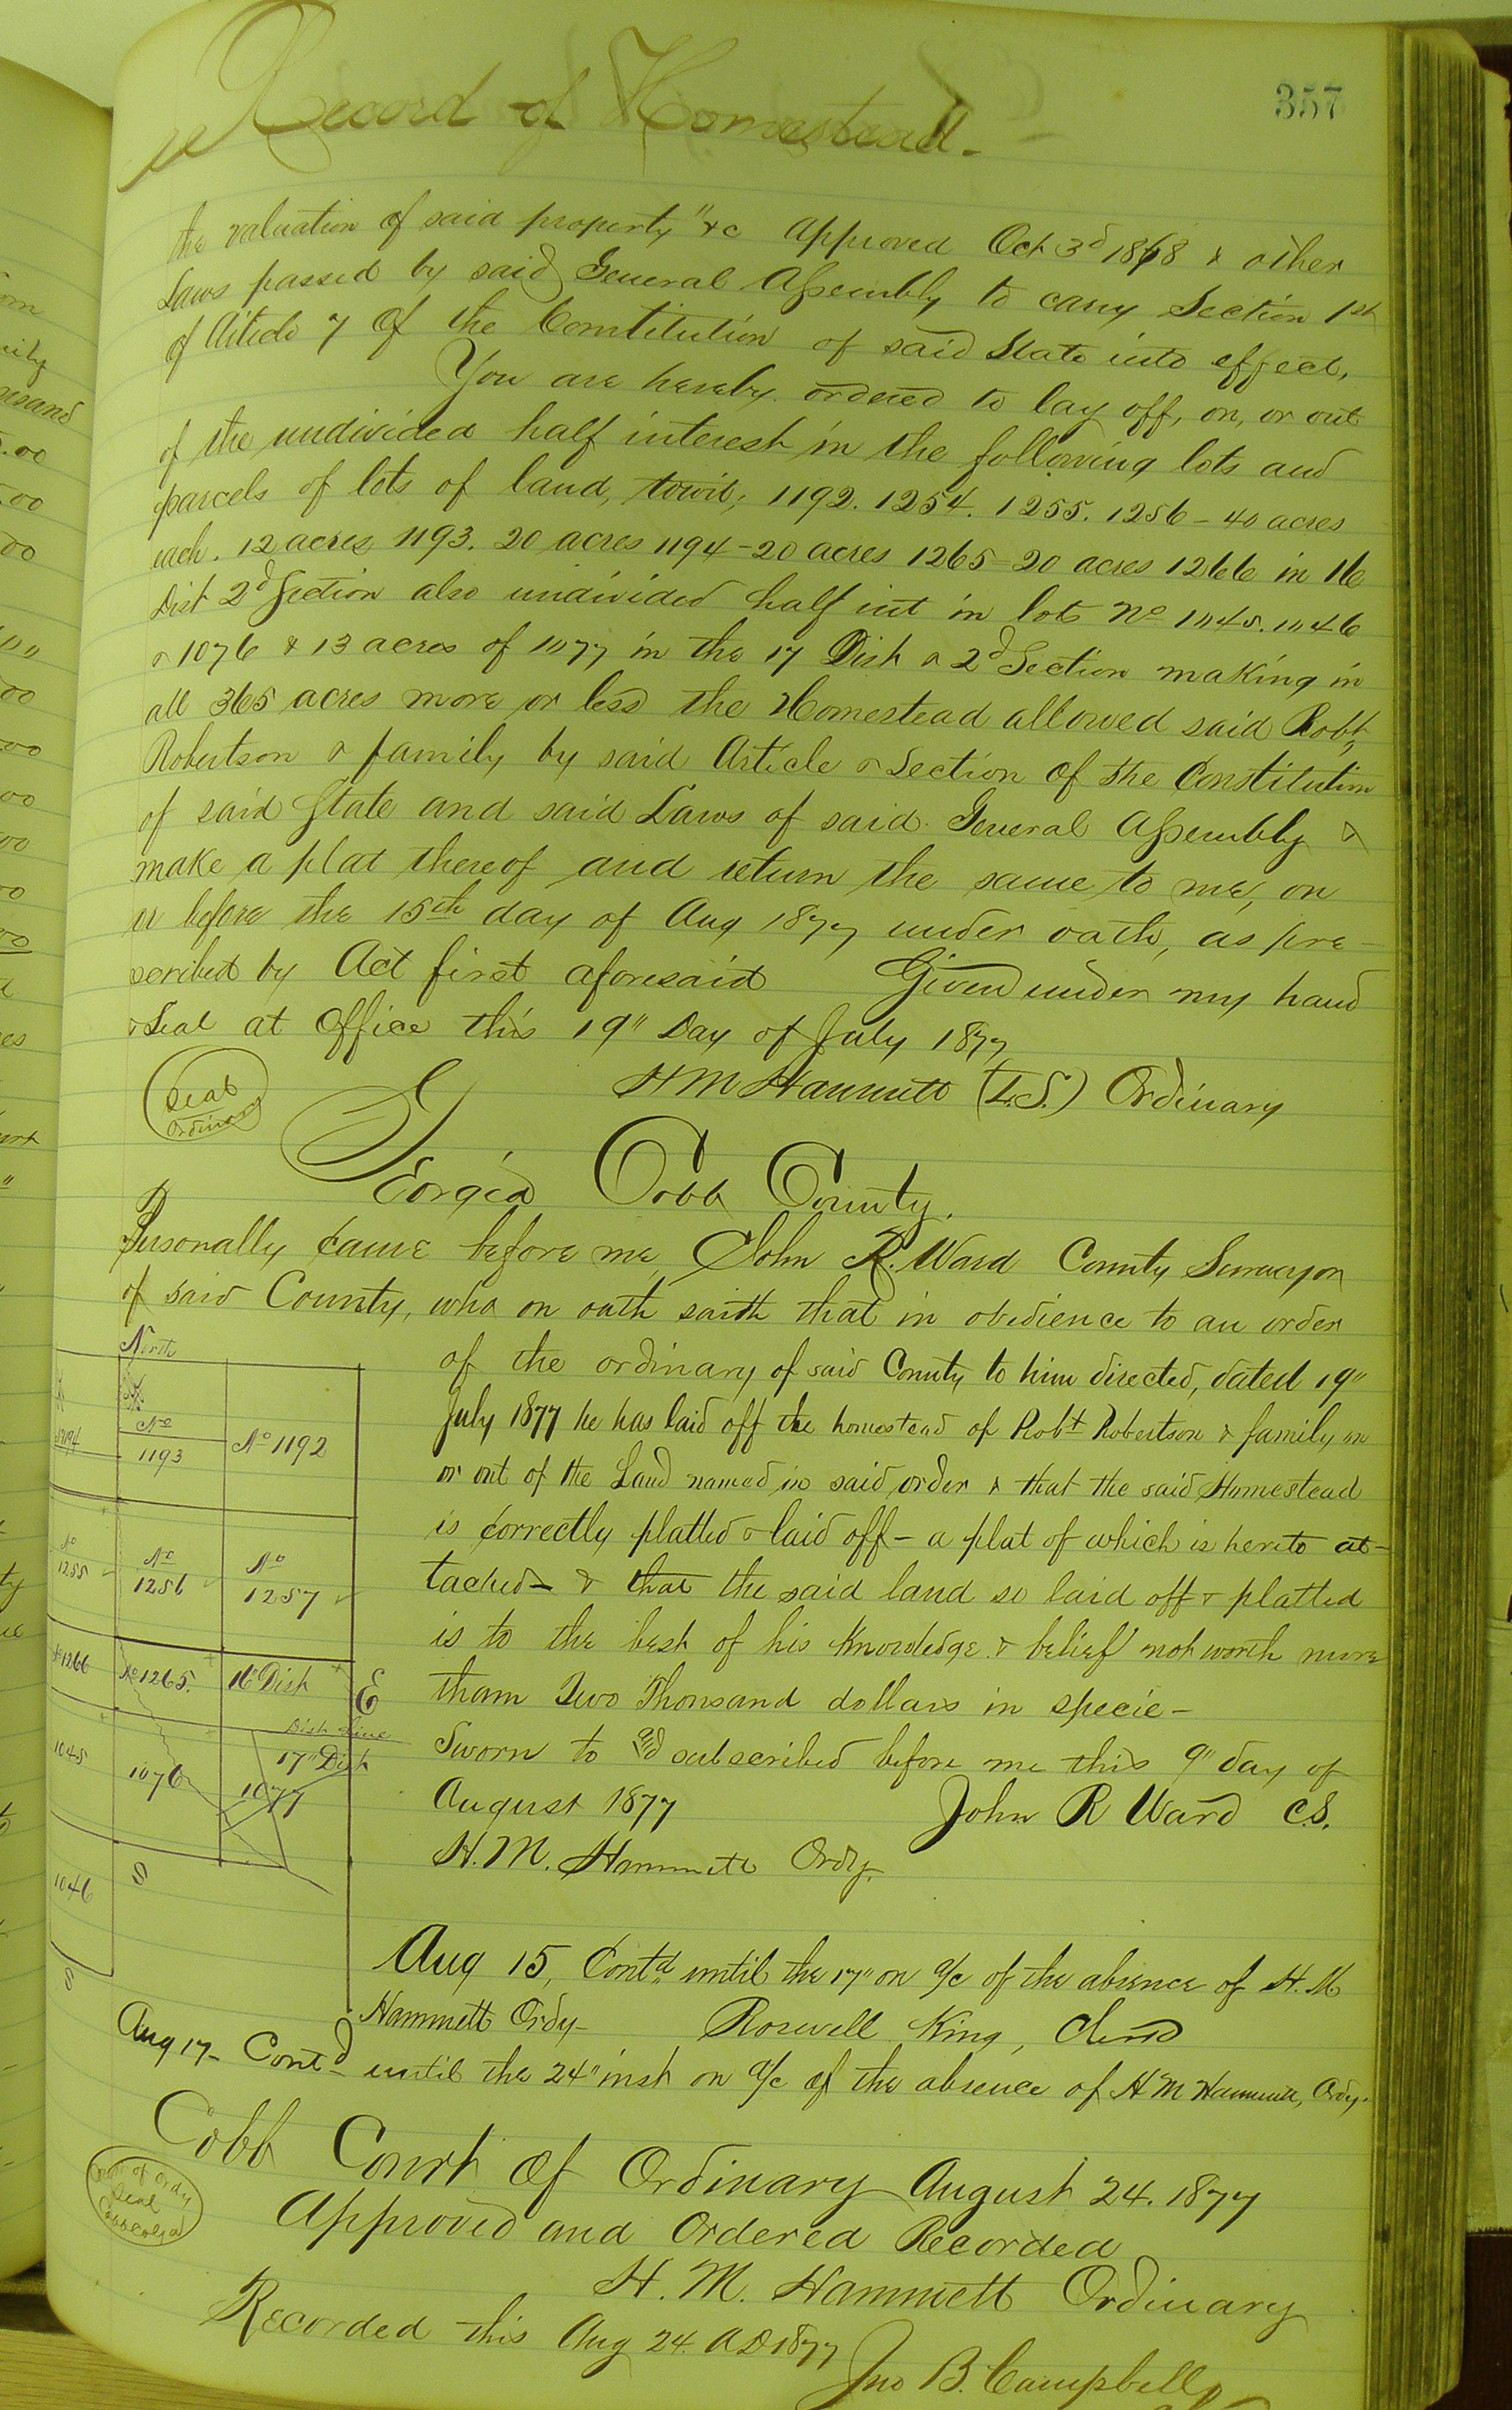 Record of Homestead.
357
the valuation of said property" &c approved Oct 3d 1868 & other
Laws passed by said General Assembly to carry Section 1st
of Article 7 of the Constitution of said State into effect,
You are hereby ordered to lay off, on, or out
of the undivided half interest in the following lots and
parcels of lots of land, towit; 1192. 1254. 1255. 1256 - 40 acres
each. 12 acres 1193. 20 acres 1194 - 20 acres 1265 - 20 acres 1266 in 16
Dist 2d Section also undivided half int in lots No 1045. 1046
& 1076 & 13 acres of 1077 in the 17 Dist & 2d Section making in
all 365 acres more or less the Homestead allowed said Robt
Robertson & family by said Article & Section of the Constitution
of said State and said Laws of said General Assembly &
make a plat thereof and return the same to me, on
or before the 15th day of Aug 1877 under oath, as pre-
scribed by Act first aforesaid Given under my hand
& Seal at office this 19" Day of July 1877
H M Hammett (L.S.) Ordinary
Seal
Ordinary
Georgia Cobb County.
Personally came before me, John R. Ward County Surveyor
of said County, who on oath saith that in obedience to an order
of the ordinary of said County to him directed, dated 19"
July 1877 he has laid off the homestead of Robt Robertson & family on
or out of the Land named in said order & that the said Homestead
is correctly platted & laid off - a plat of which is hereto at-
tached - & that the said land so laid off & platted
is to the best of his knowledge & belief not worth more
than Two Thousand dollars in specie -
Sworn to and subscribed before me this 9" day of
August 1877 John R Ward C.S.
H. M. Hammett Ordy.
North
1194
No
1193
No 1192
No
1255
No
1256
No
1257
No 1266
No 1265.
16" Dist
E
Dist Line
17" Dist
1045
1076
1077
1046
S
S
Aug 15, Contd until the 17" on a/c of the absence of H. M
Hammett Ordy - Roswell King, Clerk
Aug 17 - Contd until the 24" inst on a/c of the absence of H M Hammett, Ordy.
Cobb Court of Ordinary August 24. 1877
Approved and Ordered Recorded
H. M. Hammett Ordinary
Court of Ordy
Seal
Recorded this Aug 24. A D 1877
Jno B. Campbell